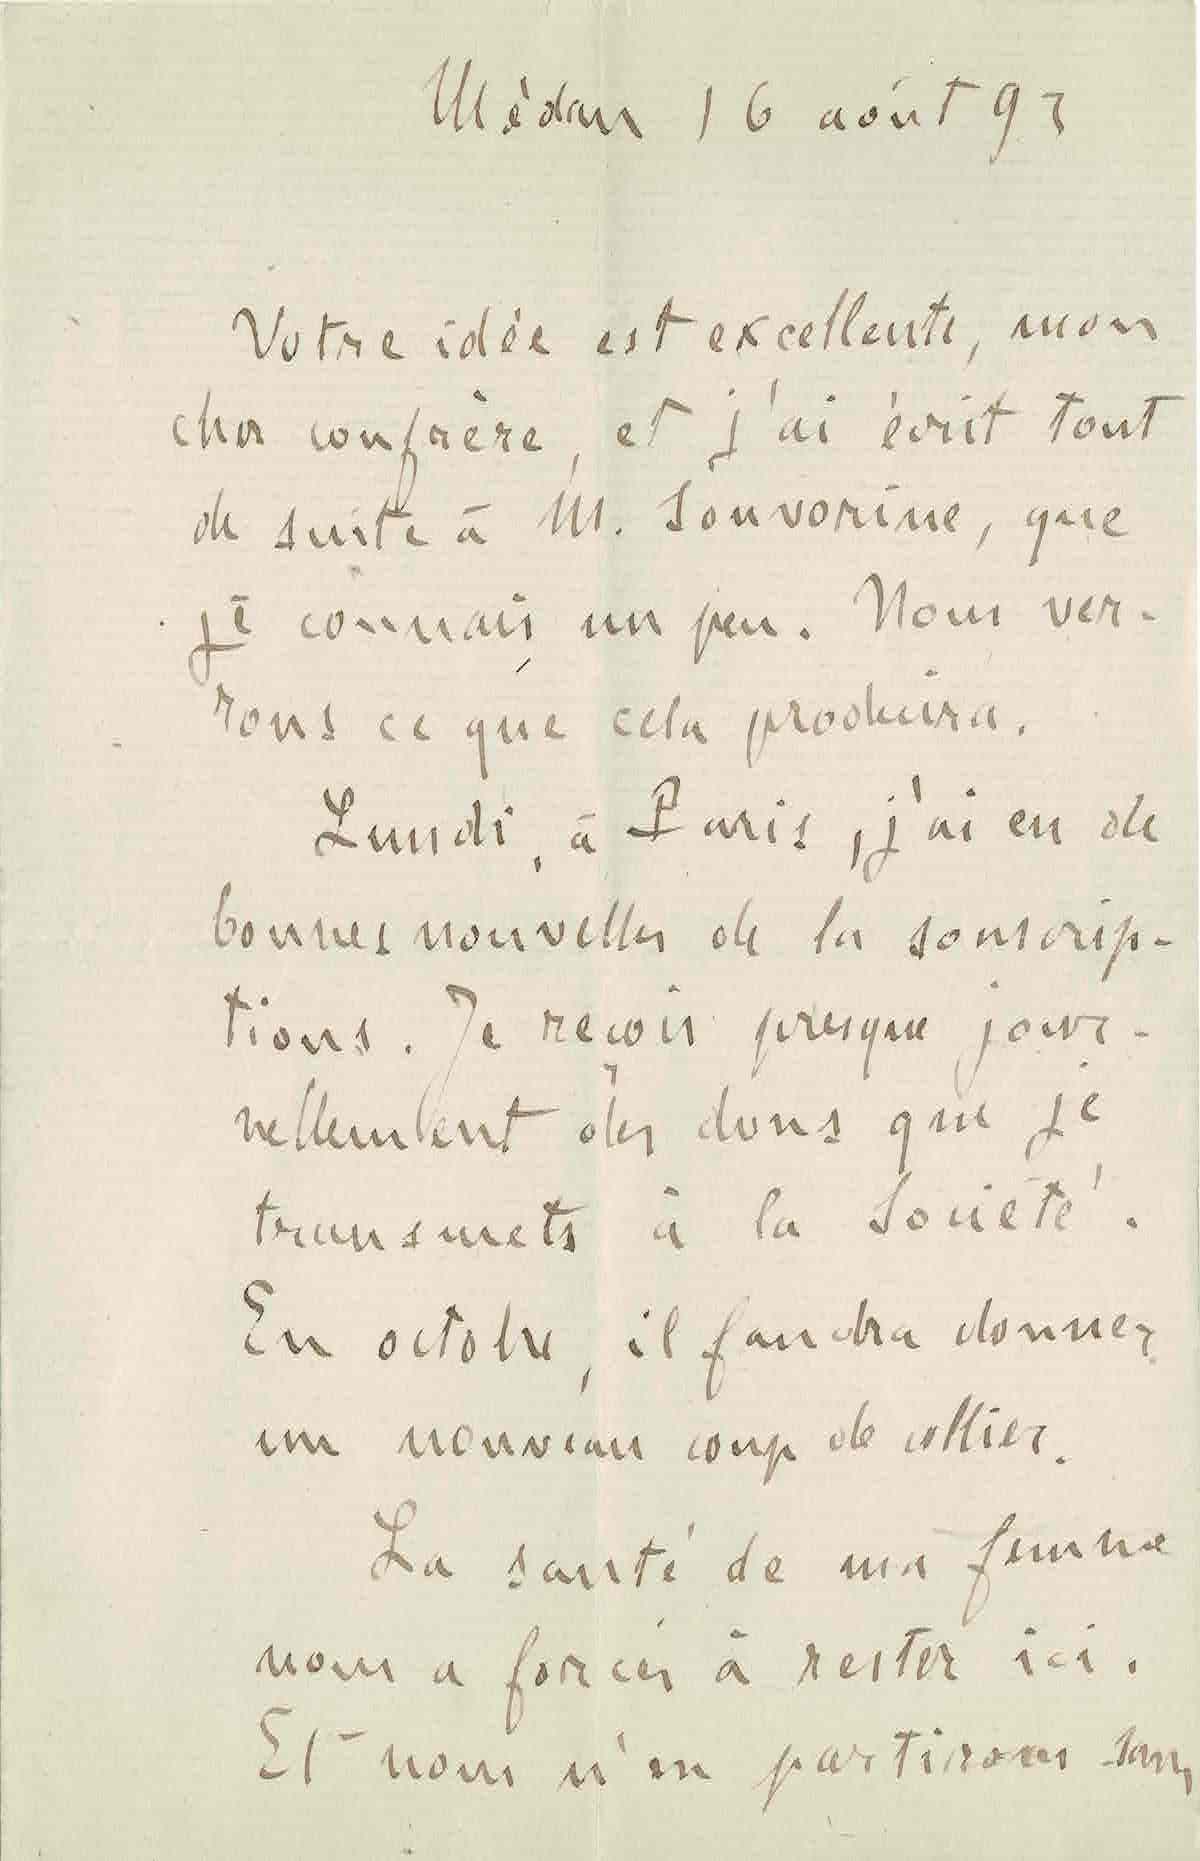 Médan 16 août 93
Votre idée est excellente, mon
cher confrère, et j'ai écrit tout
de suite à M. Souvorine, que
je connais un peu. Nous ver-
rons ce que cela produira.
Lundi, à Paris, j'ai eu de
bonnes nouvelles de la souscrip-
tions. Je reçois presque jour-
nellement des dons que je
transmets à la Société.
En octobre, il faudra donner
un nouveau coup de collier.
La santé de ma femme
nous a forcés à rester ici.
Et nous n'en partirons sans